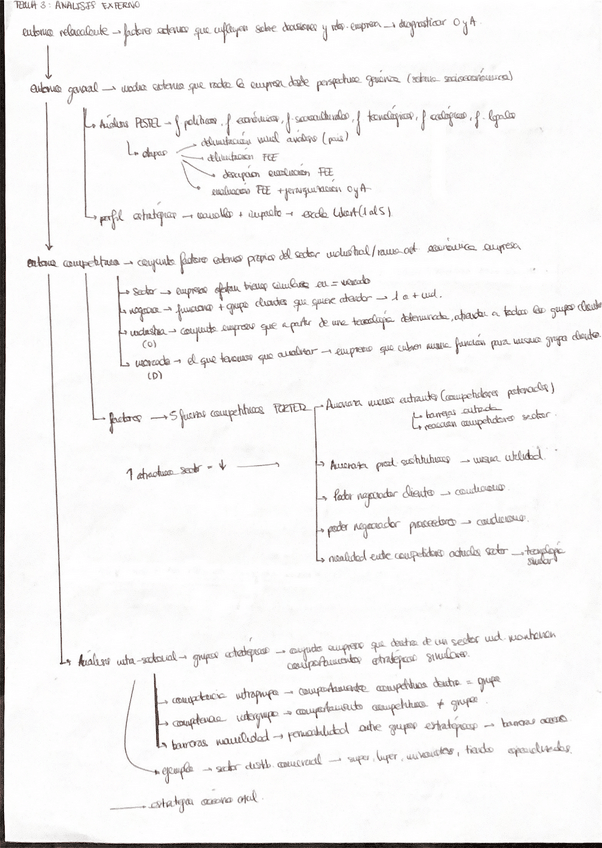 TEMA 3: ANÁLISIS EXTERNO
entorno → factores externos que influyen sobre decisiones y rdos. empresa → diagnosticar O y A.
entorno general → medio externo que rodea la empresa desde perspectiva genérica (sistema socioeconómico)
Análisis PESTEL → f políticos, f económicos, f socioculturales, f tecnológicos, f ecológicos, f legales
etapas
delimitación nivel análisis (país)
delimitación FCE
descripción evolución FCE
evaluación FCE + O y A
perfil estratégico → variables + impacto → escala Likert (1 al 5).
entorno competitivo → conjunto factores externos propios del sector industrial/rama act. económica empresa
sector → empresas ofertan bienes similares en = mercado
negocio → funciones + grupo clientes que quiere atender → 1 a + ind.
industria → conjunto empresas que a partir de una tecnología determinada, atienden a todos los grupos cliente
(O)
mercado → el que tenemos que analizar → empresas que cubren misma función para mismo grupo clientes.
(D)
factores → 5 fuerzas competitivas PORTER
Amenaza nuevos entrantes (competidores potenciales)
barreras entrada
reacción competidores sector.
↑ atractivo sector = ↓ →
Amenaza prod. sustitutivos → misma utilidad
Poder negociador clientes → condiciones.
poder negociador proveedores → condiciones.
rivalidad entre competidores actuales sector → tecnología
similar
Análisis intra-sectorial → grupos estratégicos → conjunto empresas que dentro de un sector ind. mantienen
comportamientos estratégicos similares.
competencia intragrupo → comportamiento competitivo dentro = grupo
competencia intergrupo → comportamiento competitivo ≠ grupo.
barreras movilidad → permeabilidad entre grupos estratégicos → barreras acceso
ejemplo → sector distrib. comercial → super, hiper, minoristas, tiendas especializadas.
→ estrategia